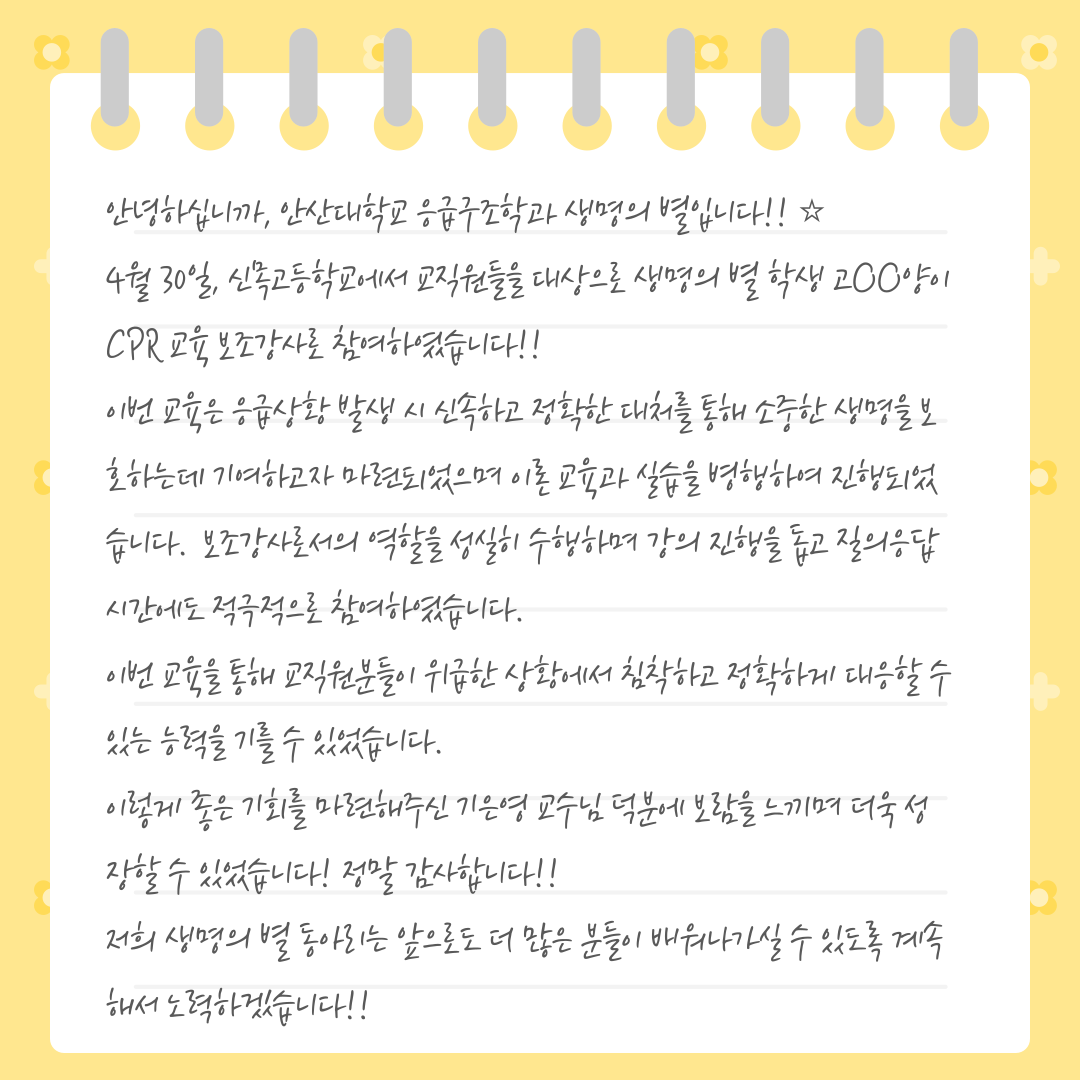 안녕하십니까, 안산대학교 응급구조학과 생명의 별입니다!! ☆
4월 30일, 신목고등학교에서 교직원들을 대상으로 생명의 별 학생 고OO양이
CPR 교육 보조강사로 참여하였습니다!!
이번 교육은 응급상황 발생 시 신속하고 정확한 대처를 통해 소중한 생명을 보
호하는데 기여하고자 마련되었으며 이론 교육과 실습을 병행하여 진행되었
습니다. 보조강사로서의 역할을 성실히 수행하며 강의 진행을 돕고 질의응답
시간에도 적극적으로 참여하였습니다.
이번 교육을 통해 교직원분들이 위급한 상황에서 침착하고 정확하게 대응할 수
있는 능력을 기를 수 있었습니다.
이렇게 좋은 기회를 마련해주신 기은영 교수님 덕분에 보람을 느끼며 더욱 성
장할 수 있었습니다! 정말 감사합니다!!
저희 생명의 별 동아리는 앞으로도 더 많은 분들이 배워나가실 수 있도록 계속
해서 노력하겠습니다!!